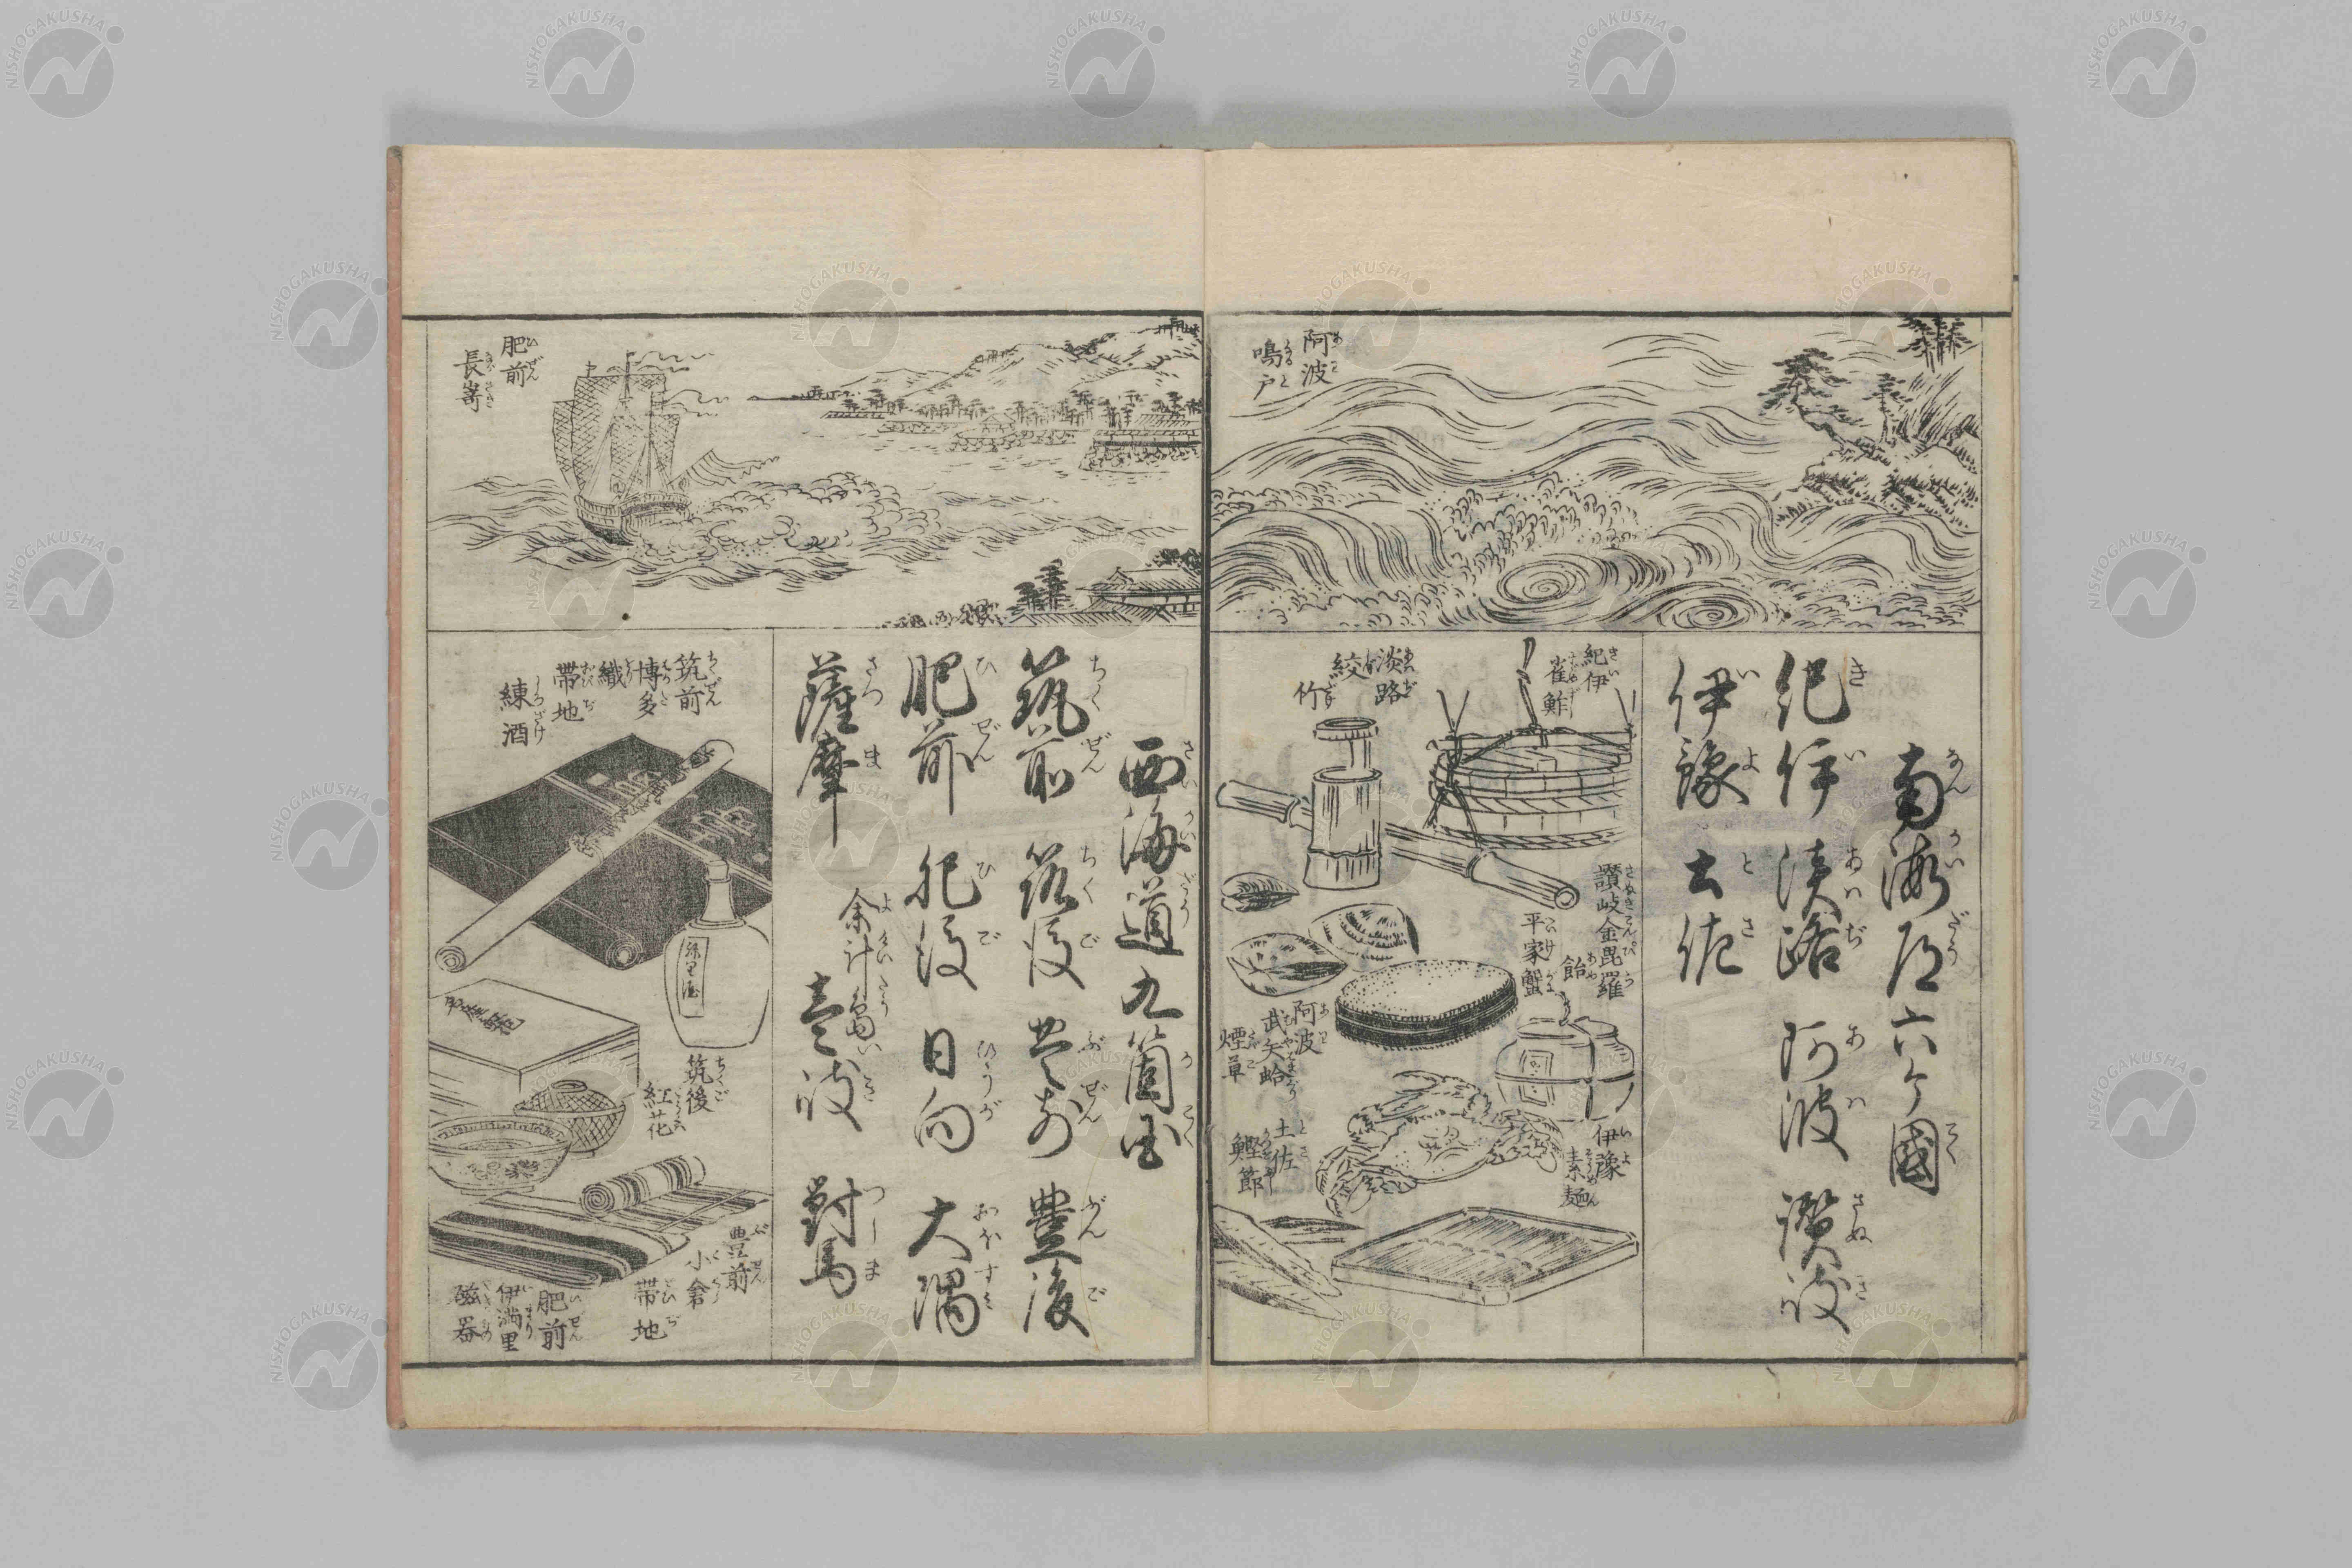 阿波
鳴戸
南海道六ケ國
紀伊 淡路 阿波 讃岐
伊豫 土佐
紀伊
雀鮓
淡路
絞
竹
讃岐金毘羅
飴
平家蟹
阿波
武矢蛤
煙草
伊豫
素麺
土佐
鰹節
肥前
長嵜
西海道九箇国
筑前 筑後 豊前 豊後
肥前 肥後 日向 大隅
薩摩
余計島
壱岐 對馬
筑前
博多
織
帯地
練酒
筑後
紅花
豊前
小倉
帯地
肥前
伊満里
磁器
NISHOGAKUSHA